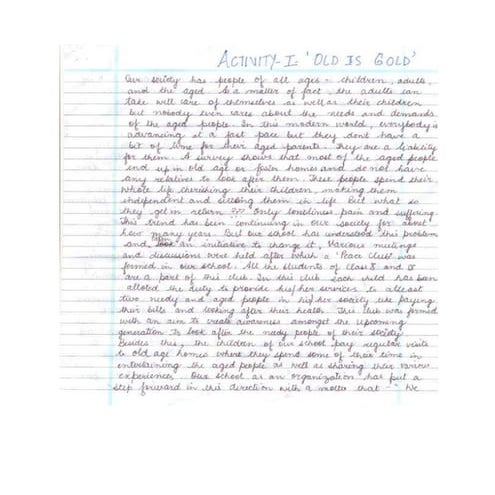 ACTIVITY-I 'OLD IS GOLD'
Our society has people of all ages - children, adults,
and the aged. As a matter of fact, the adults can
take well care of themselves as well as their children
but nobody even cares about the needs and demands
of the aged people. In this modern world, everybody is
advancing at a fast pace but they don't have a
bit of time for their aged parents. They are a liability
for them. A survey shows that most of the aged people
end up in old age or foster homes and do not have
any relatives to look after them. These people spend their
whole life cherishing their children, making them
independent and seeing them in life but what so
they get in return ??? Only loneliness pain and suffering.
This trend has been continuing in our society for
how many years. But our school has understood this problem
and taken an initiative to change it, Various meetings
and discussions were held after which a 'Peace Club' was
formed in our school. All the students of Class 8 and
are a part of this club. In this club each child has been
alloted the duty to provide his/her services to atleast
two needy and aged people in his/her society like paying
their bills and looking after their health. This club was formed
with an aim to create awareness amongst the upcoming
generation to look after the needy people of their society
Besides this, the children of our school pay regular visits
to old age homes where they spend some of their time in
entertaining the aged people as well as sharing their various
experiences. Our school as an organization has put a
step forward in this direction with a motto that - " We